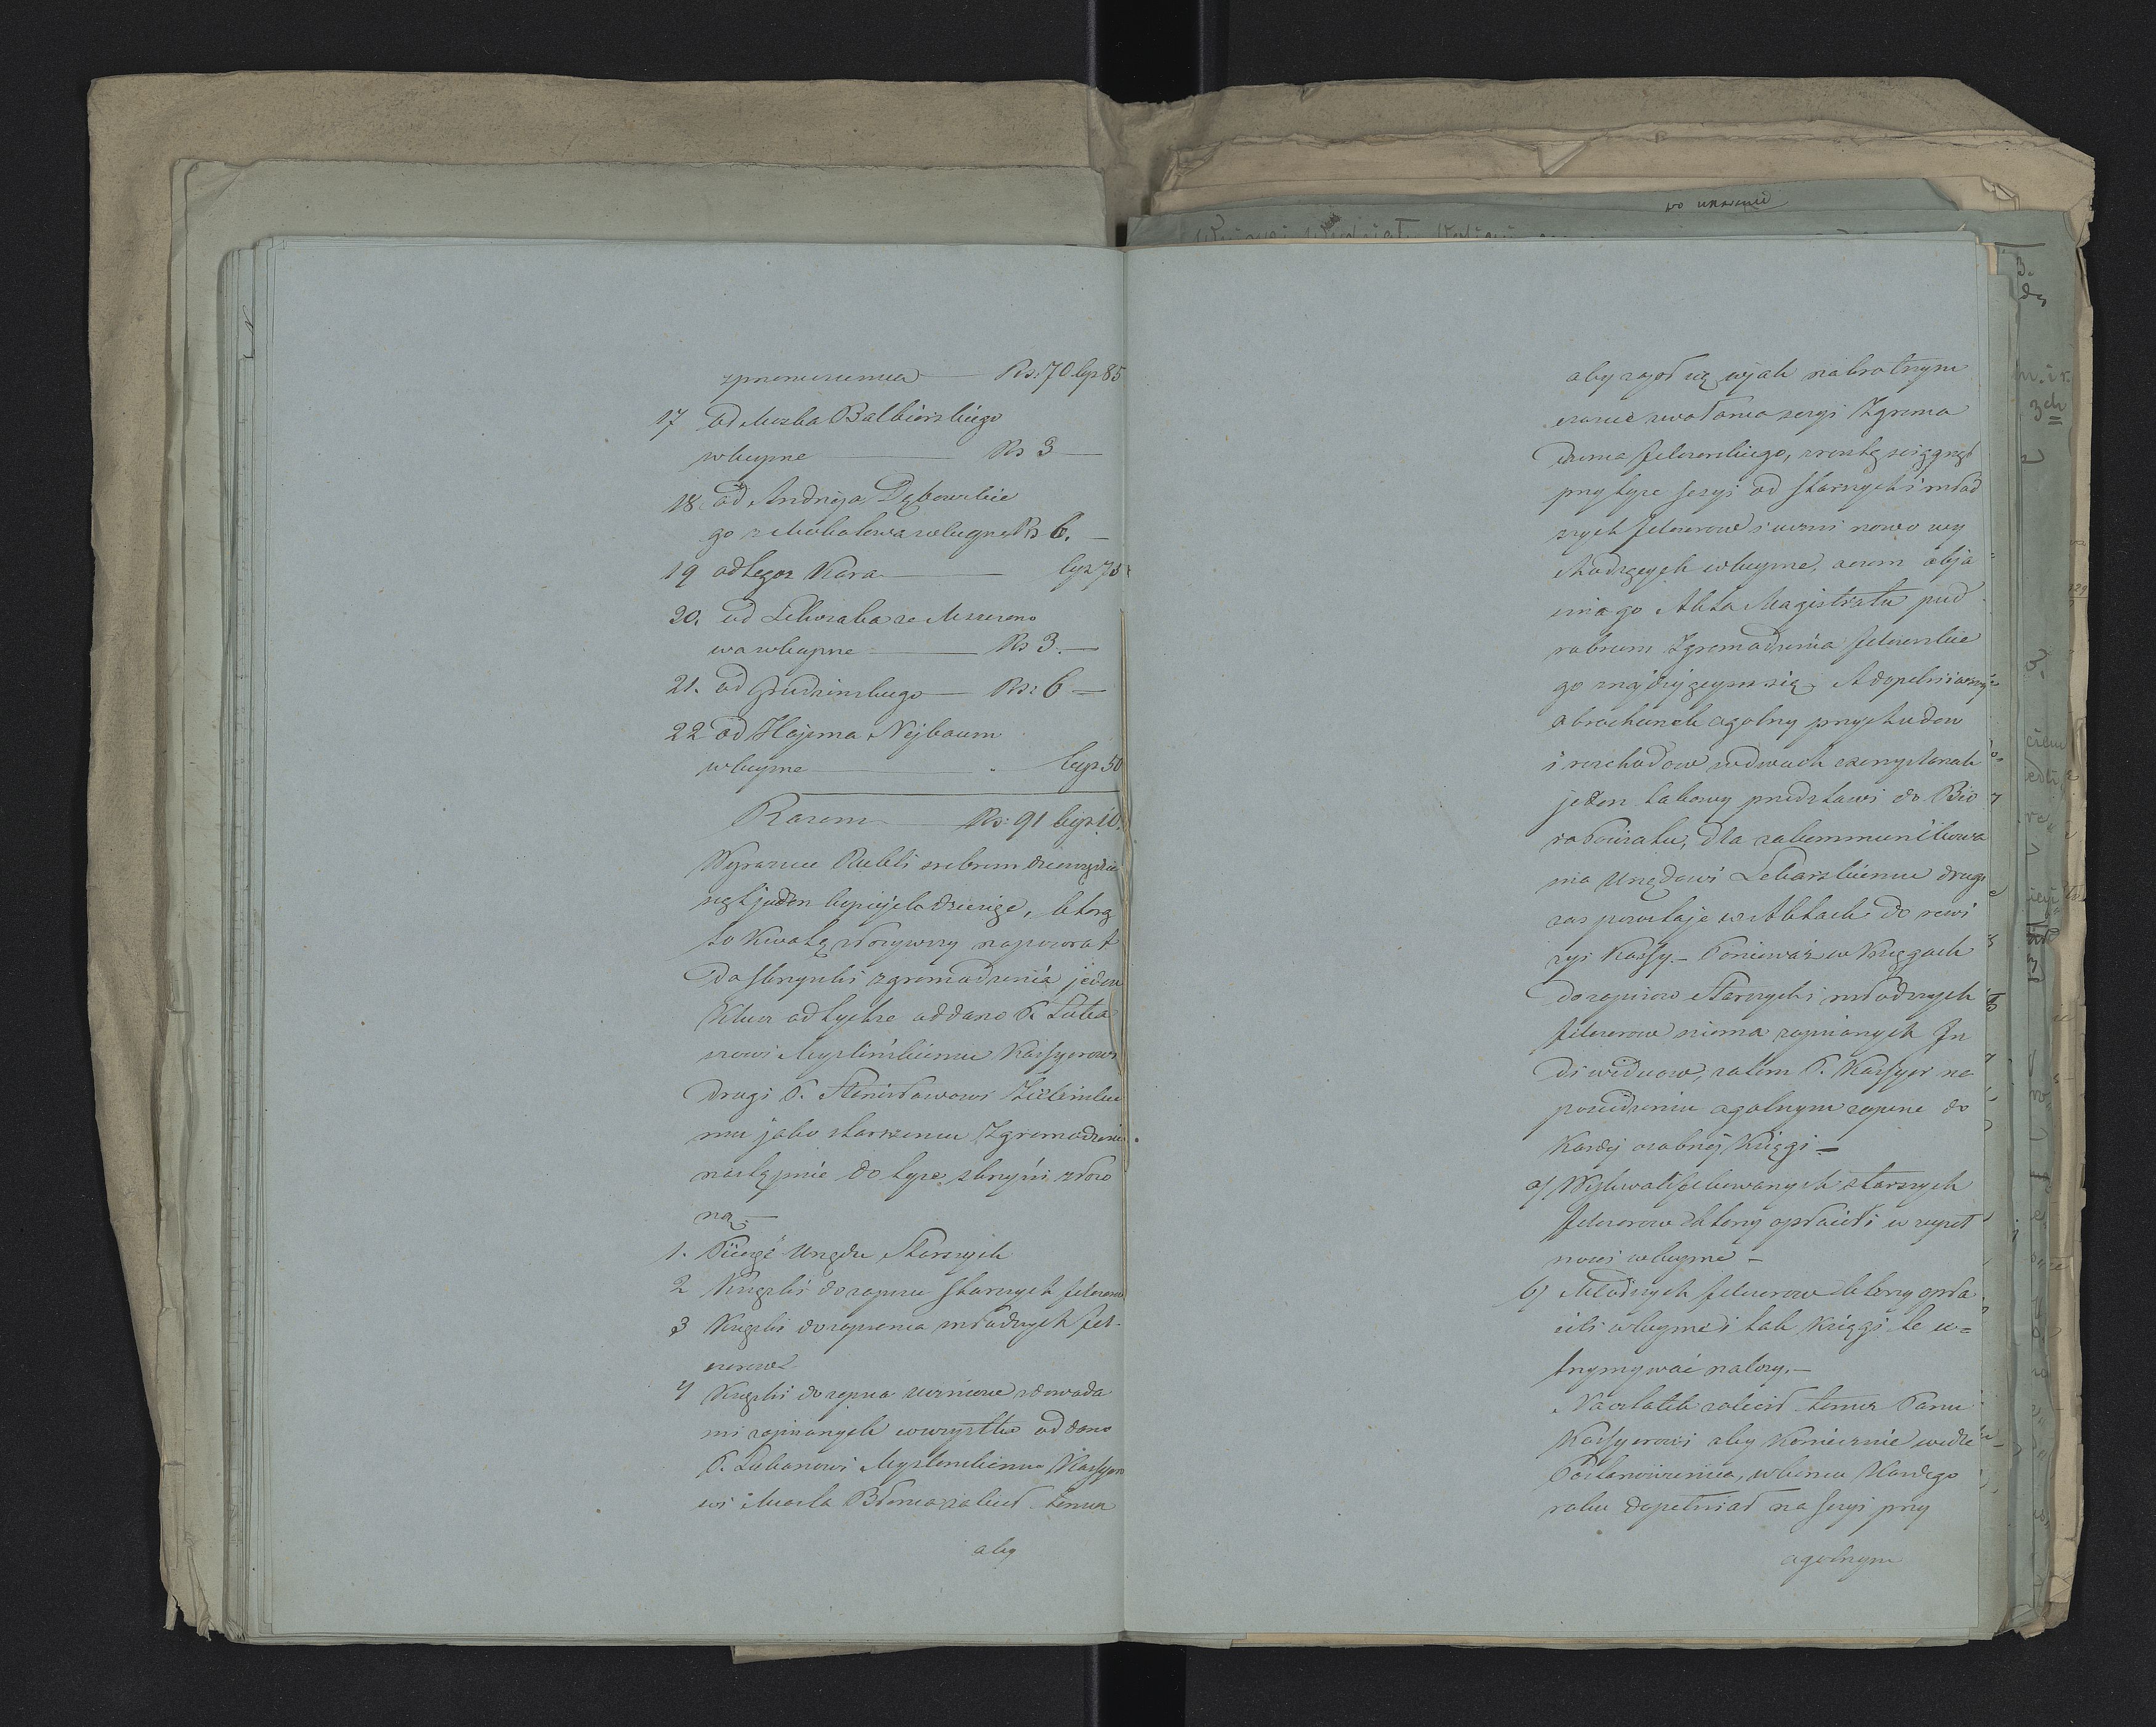 z przeniesienia — Rs: 70 kop 85
17 od Moska Balbierskiego
wkupne — Rs 3 —
18. od Andrzeja Dębowskie
go z Mokotowa wkupne Rs 6. —
19 od tegoż Kara — kop 75
20. od Lekszaka ze Mszczono
wa wkupne — Rs 3. —
21. od Grudzinskiego — Rs: 6 —
22 od Hajema Nejbaum
wkupne — kop 50
Razem — Rs: 91 kop 10.
Wyraznie Rubli srebrem dziewiędzie
siąt jeden kopiejek dziesięc, ktorą
to Kwotę złożywszy napowrot
Do skrzynki zgromadzenia jeden
Klucz od tychze oddano P. Luka
szowi Myslinskiemu Kassyerowi
Drugi P. Stanisławowi Zielinskie
mu jako starszemu Zgromadzenia.
następnie do tyze skrzyni złożo
no, —
1. Pieczęć Urzędu Starszych
2 Książki do zapisu Starszych felczerow
3 Książki do zapisania młodszych fel-
czerow
4 Książki do zapisu uczniow z dowoda
mi zapisanych wszystko oddano
P. Lukaszowi Myslenskiemu Kassyero
wi zalecił temuż
aby
aby zajoł się, wjak nakrotszym
czasie zwołania sesyi Zgroma
dzenia felczerskiego, resztę sciągnął
przy tyże sesyi od starszych i młod
szych felczerow i uczni nowo wy
chodzących wkupne, oczem obja
snia go Akta Magistratu pod
rubrum Zgromadzenia felczerskie
go znajdującym się, A dopełniwszy
obrachunek ogolny przychodow
i roschodow w dwoch exemplarzach
jeden takowy przedstawi do Biu
ra Powiatu, dla zakommunikowa
nia Urzędowi Lekarskiemu drugi
zas powstaje w Aktach do rewi
zyi Kassy. — Ponieważ w Księgach
do zapisow Starszych i młodszych
felczerow niema zapisanych In
dividuow, zatem P. Kassyer na
posiedzeniu ogolnym zapisze do
Każdej osobnej Księgi —
a) Wykwalifikowanych starszych
felczerow ktorzy opłacili w zupeł
nosci wkupne —
b) Młodszych felczerow ktorzy opła
cili wkupne i tak Księgi te u=
trzymywać należy. —
Naostatek zalecił temuz Panu
Kassyerowi aby Koniecznie wedle
Postanowienia, wkoncu Kazdego
roku dopełniał na Sesyi przy
ogolnym